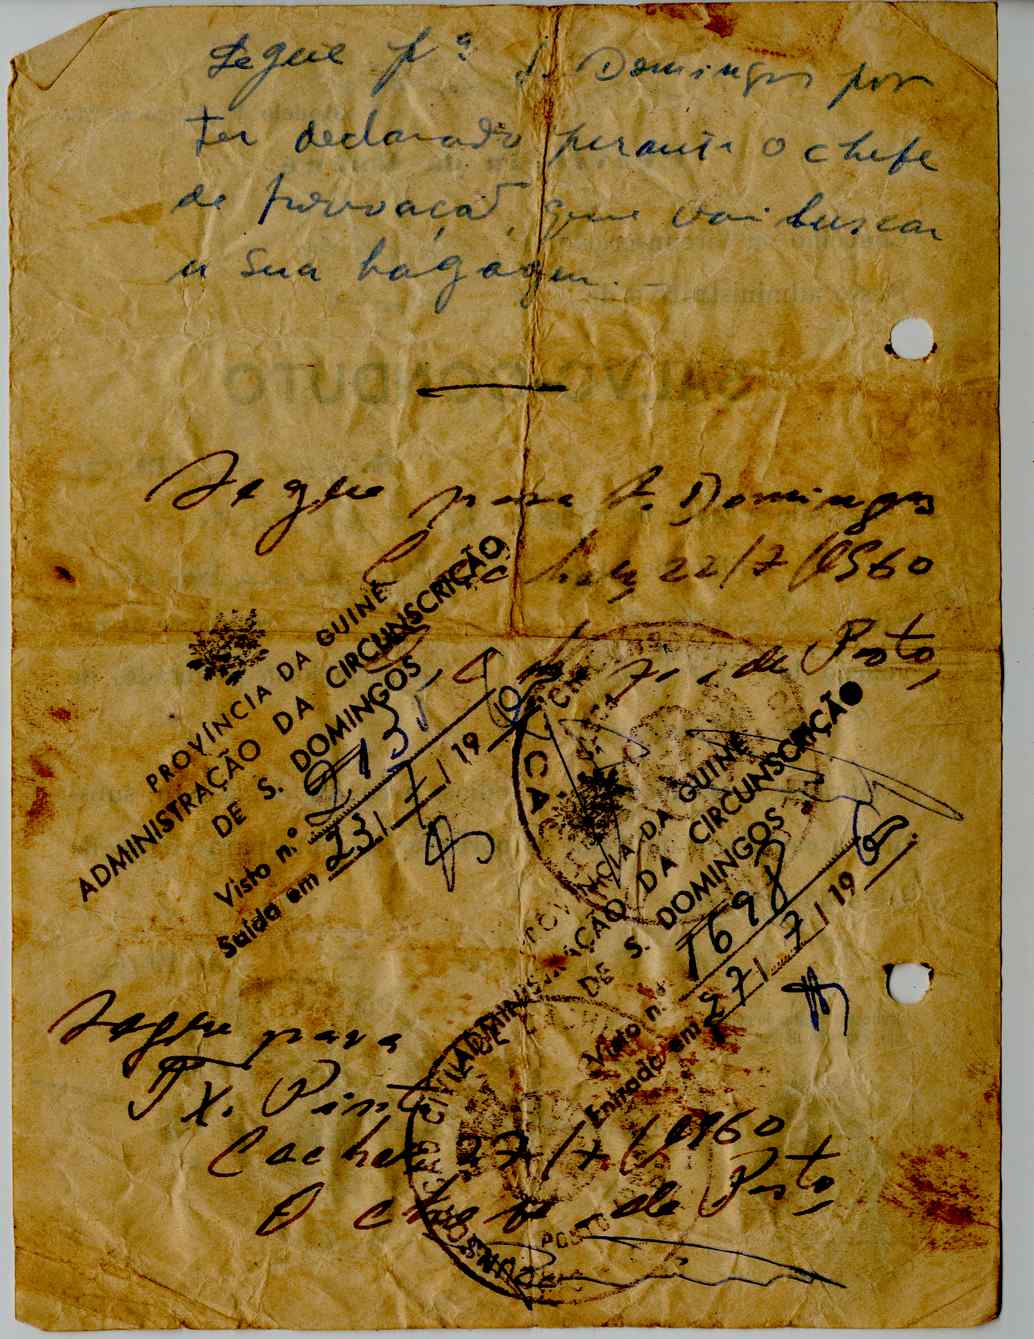 Segue pª S. Domingos por
ter declarado perante o chefe
de povoação, que vai buscar
a sua bágagem.
Segue para S. Domingos
22/7/1960
de Posto,
PROVÍNCIA DA GUINÉ
ADMINISTRAÇÃO DA CIRCUNSCRIÇÃO
DE S. DOMINGOS
Visto n.º 2135
Saída em 23/7/1960
PROVÍNCIA DA GUINÉ
ADMINISTRAÇÃO DA CIRCUNSCRIÇÃO
DE S. DOMINGOS
Visto n.º 1698
Entrada em 27/7/1960
Segue para
Tx. Pinto
Cacheu 27/7/1960
O chefe de Posto,
POSTO